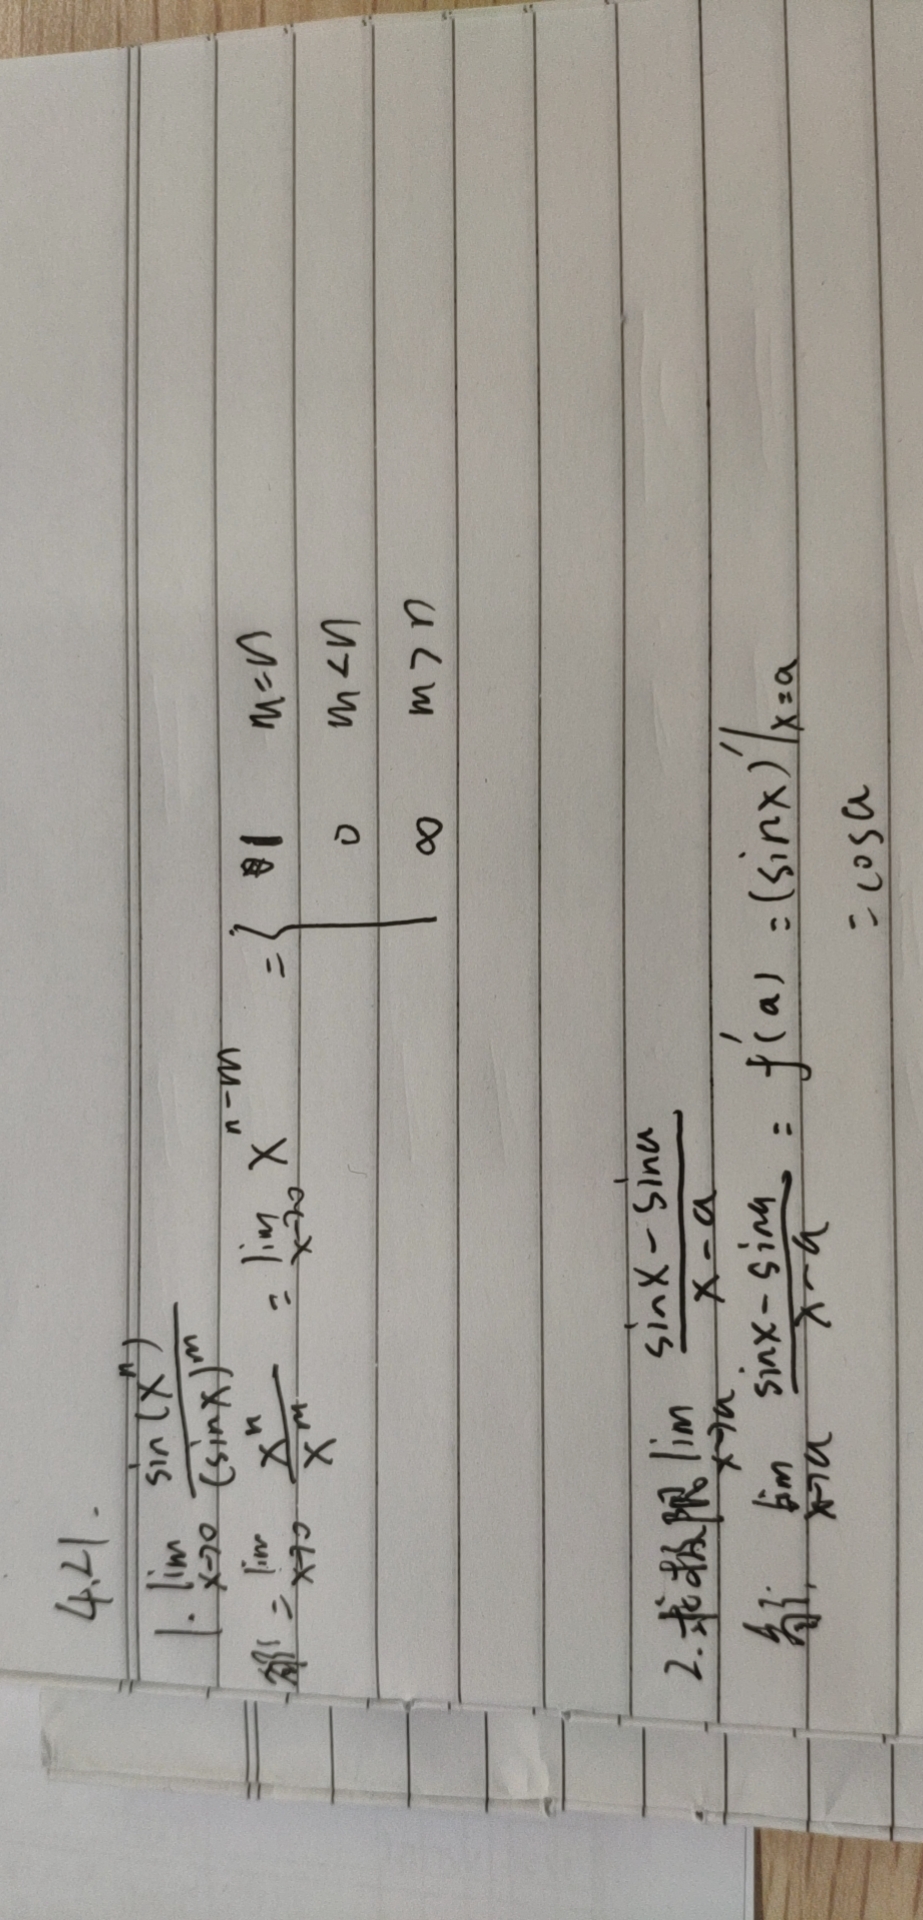 4.21.
1. lim x→0 sin(xⁿ)/(sinx)ᵐ
解 = lim x→0 xⁿ/xᵐ = lim x→0 xⁿ⁻ᵐ = { 1 m=n
0 m<n
∞ m>n
2.求极限 lim x→a (sinx-sina)/(x-a)
解. lim x→a (sinx-sina)/(x-a) = f'(a) = (sinx)'|x=a
= cosa